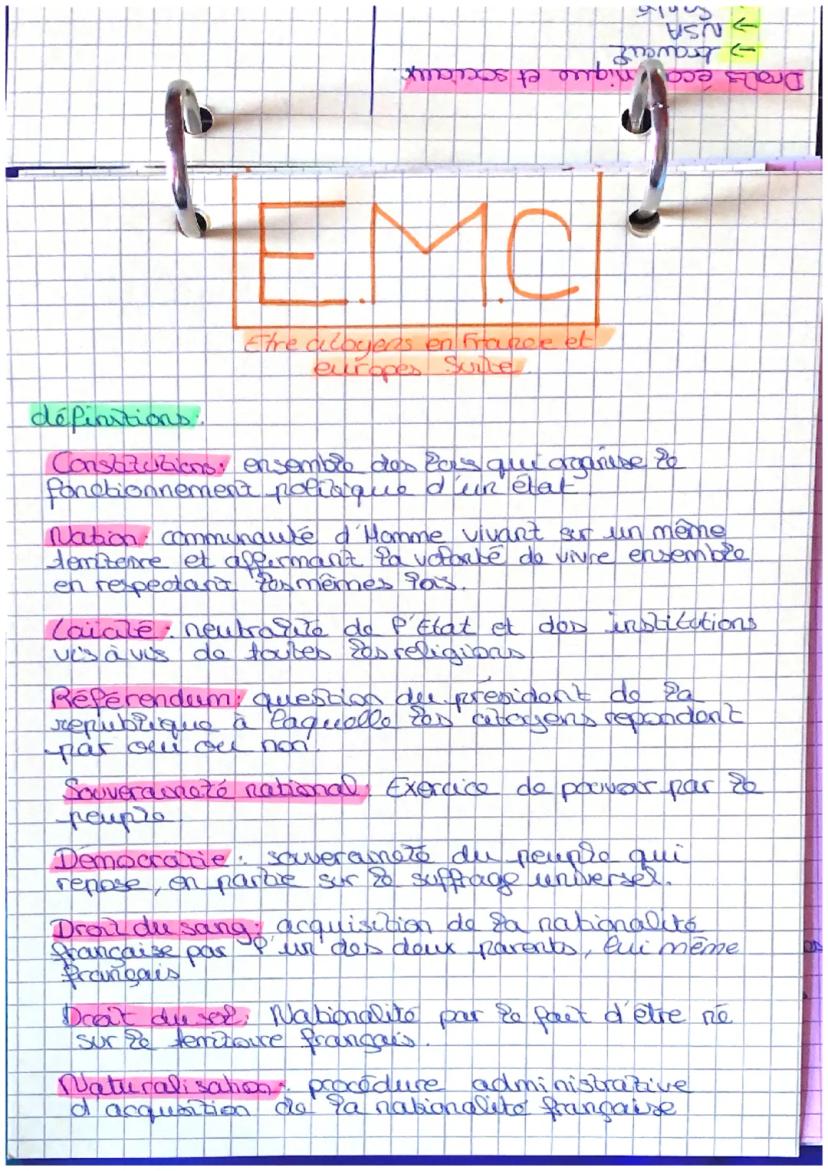 Droits économique et sociaux.
→ travail
→ NSA
→ Santé
E.M.C
Etre citoyens en France et
europes Suite
définitions:
Constitutions: ensemble des lois qui organise le
fonctionnement politique d'un état
Nation: communauté d'Homme vivant sur un même
territoire et affirmant la volonté de vivre ensemble
en respectant les mêmes lois.
Laïcité: neutralité de l'Etat et des institutions
vis à vis de toutes les religions
Référendum: question du président de la
republique à laquelle les citoyens repondent
par oui ou non.
Souveraineté national: Exercice de pouvoir par le
peuple
Démocratie: souveraineté du peuple qui
repose, en partie sur le suffrage universel.
Droit du sang: acquisition de la nationalité
française par l'un des deux parents, lui même
français
Droit du sol: Nationalité par le fait d'être né
sur le territoire français.
Naturalisation: procédure administrative
d'acquisition de la nationalité française